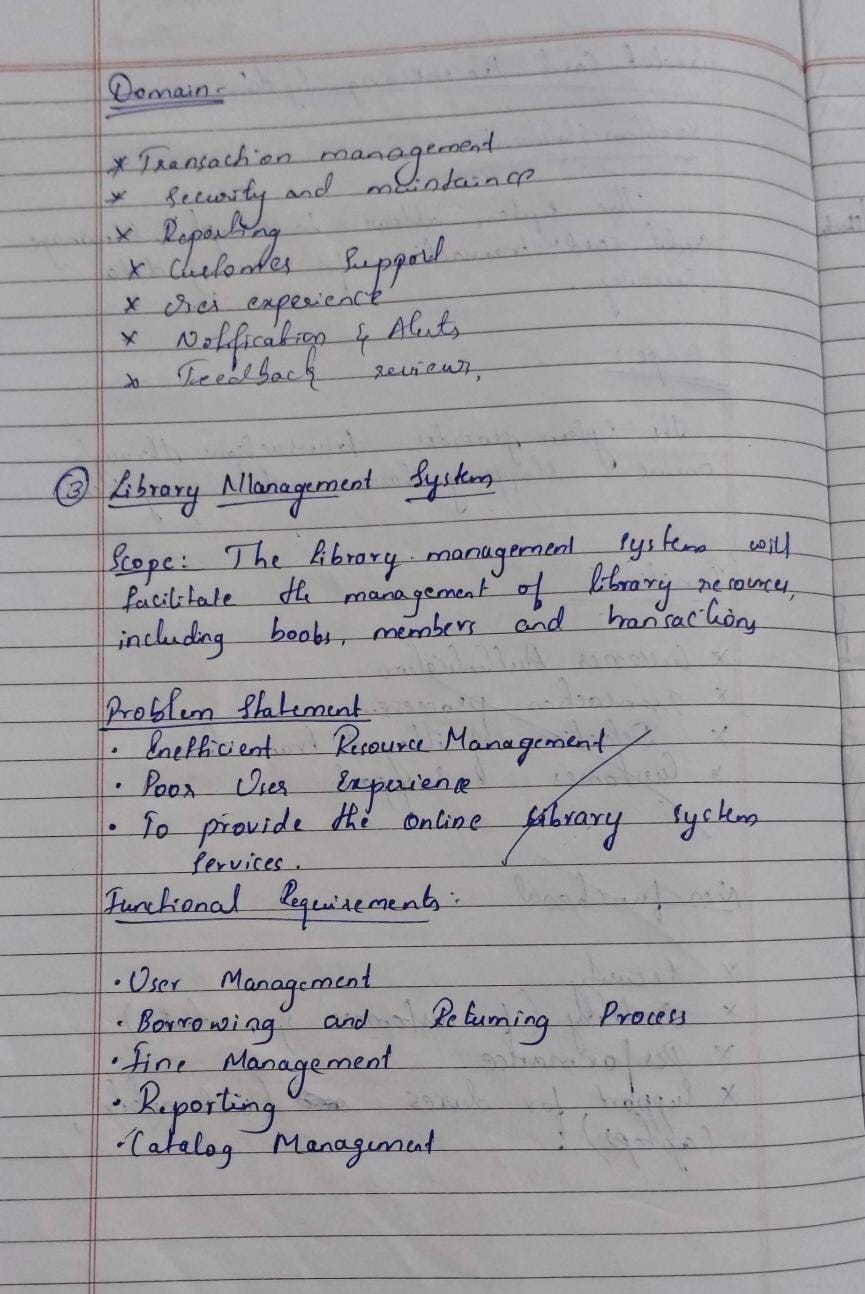 Domain:-
* Transaction management
* Security and maintaince
* Reporting
* Customer Support
* User experience
* Notification & Alerts
* Feedback reviews,
③ Library Management System
Scope: The library management system will
facilitate the management of library resources,
including books, members and transactions
Problem Statement
· Inefficient Resource Management
· Poor User Experience
· To provide the online library system
services.
Functional Requirements:
· User Management
· Borrowing and Returning Process
· Fine Management
· Reporting
· Catalog Management